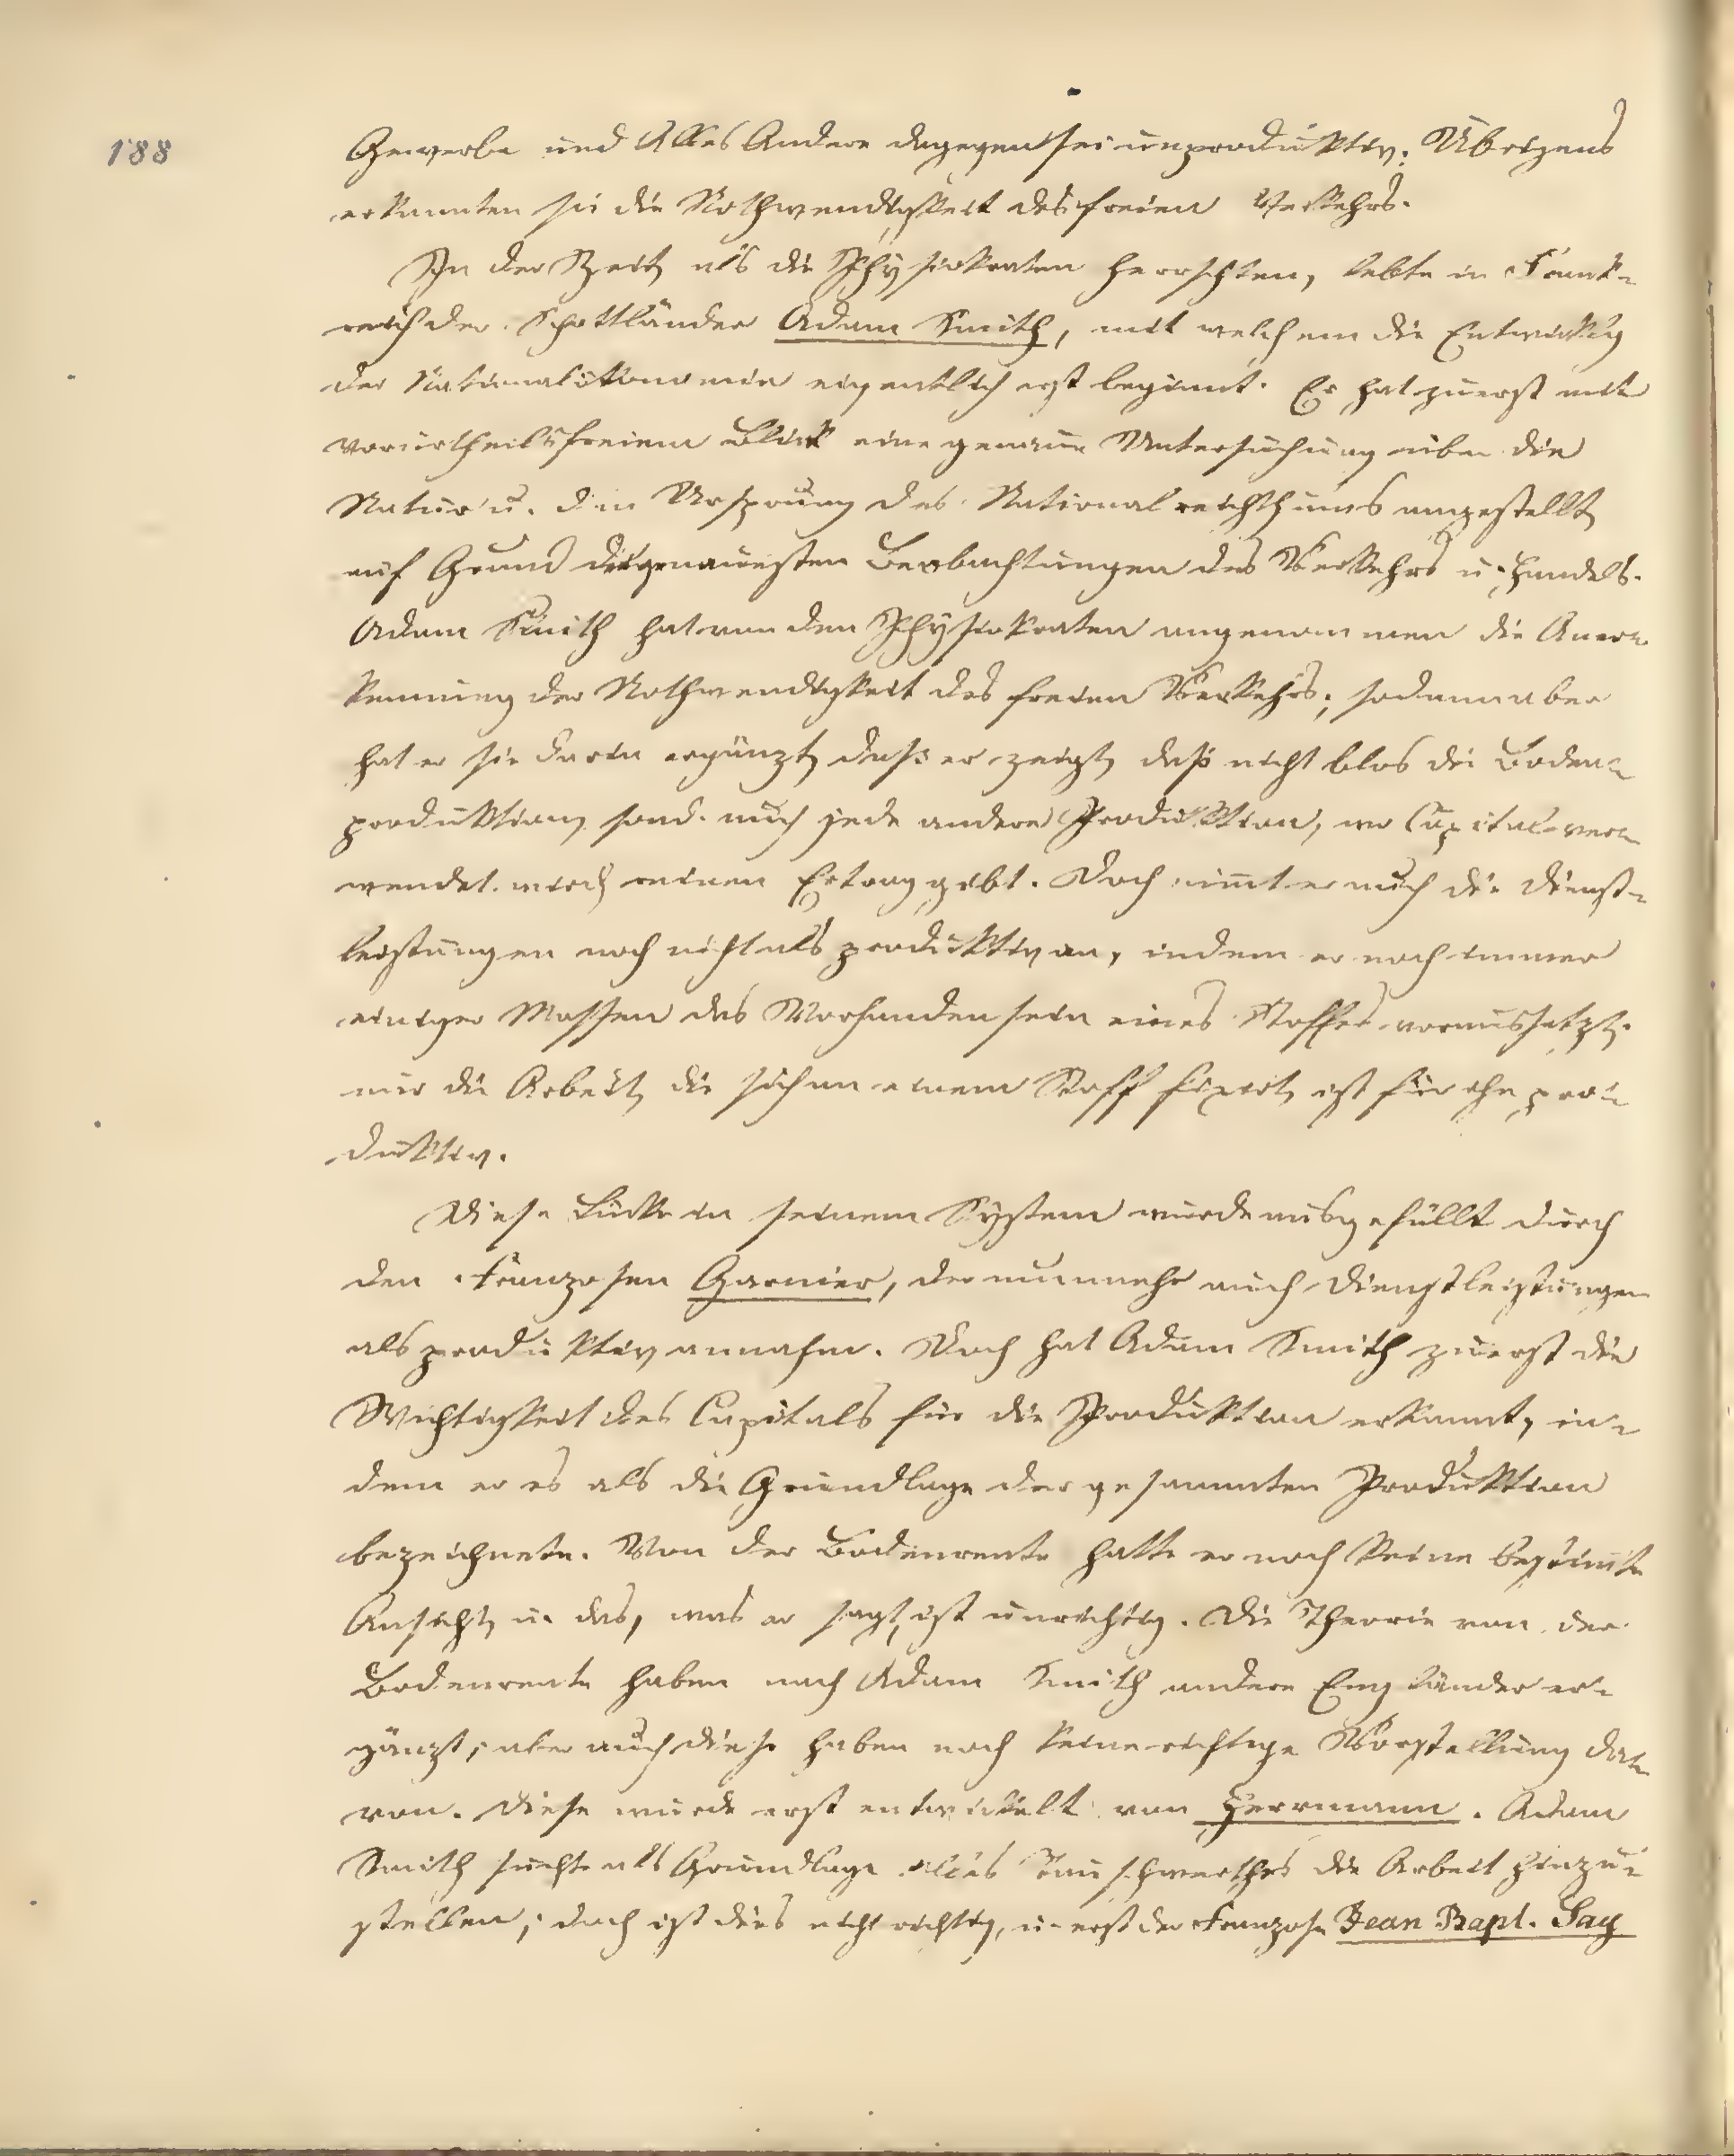 188
Gewerbe und Alles Andere dagegen sei unproduktiv. Übrigens
erkannten sie die Nothwendigkeit des freien Verkehrs.
In der Zeit, als die Physiokraten herrschten, lebte in Frank-
reich der Schottländer Adam Smith, mit welchem die Entwicklg
der Nationalökonomie eigentlich erst beginnt. Er hat zuerst mit
vorurtheilsfreiem Blick eine genaue Untersuchung über die
Natur u. den Ursprung des Nationalreichthums angestellt,
auf Grund der genauesten Beobachtungen des Verkehrs u. Handels.
Adam Smith hat von den Physiokraten angenommen die Aner-
kennung der Nothwendigkeit des freien Verkehrs; sodann aber
hat er sie darin ergänzt, daß er zeigt, daß nicht blos die Boden-
produktion, sond. auch jede andere Produktion, wo Capital ver-
wendet wird, reinen Ertrag gibt. Doch nimt er auch die Dienst-
leistungen noch nicht als produktiv an, indem er noch immer
einiger Massen das Vorhandensein eines Stoffes voraussetzt.
nur die Arbeit, die sich an einem Stoff fixirt, ist für ihn pro-
duktiv.
Diese Lücke in seinem System wurde ausgefüllt durch
den Franzosen Garnier, der nunmehr auch Dienstleistungen
als produktiv annahm. Doch hat Adam Smith zuerst die
Wichtigkeit des Capitals für die Produktion erkannt, in-
dem er es als die Grundlage der gesammten Produktion
bezeichnete. Von der Bodenrente hatte er noch keine bestimte
Ansicht, u. das, was er sagt, ist unrichtig. Die Theorie von der
Bodenrente haben nach Adam Smith andere Engländer er-
gänzt; aber auch diese haben noch keine richtige Vorstellung da-
von. Diese wurde erst entwickelt von Herrmann. Adam
Smith suchte als Grundlage alles Tauschwerthes die Arbeit hinzu-
stellen; doch ist dies nicht richtig, u. erst der Franzose Jean Bapt. Say